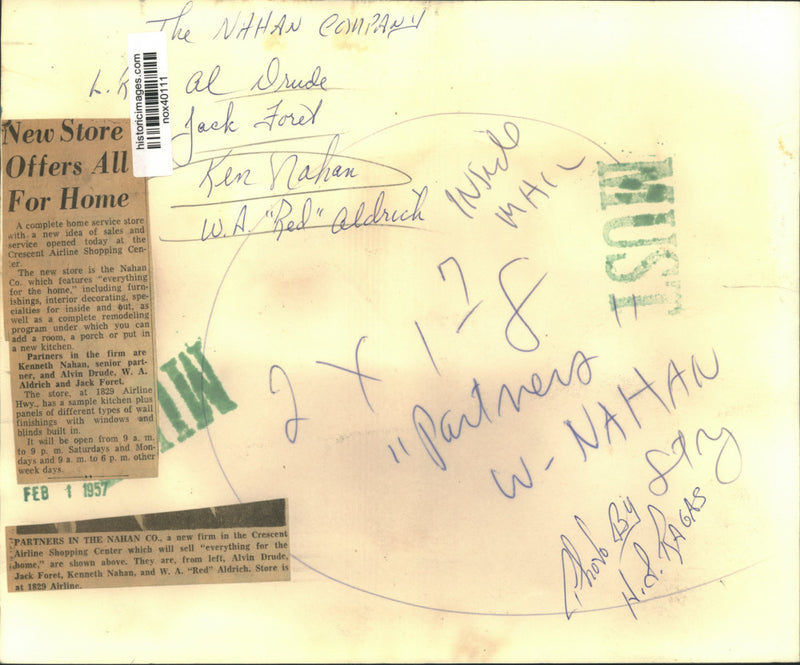 The NAHAN COMPANY
historicimages.com
nox40111
L.
Al Drude
Jack Foret
Ken Nahan
W.A. "Red" Aldrich
INSIDE
MAIL
MUST
New Store
Offers All
For Home
A complete home service store
with a new idea of sales and
service opened today at the
Crescent Airline Shopping Cen-
ter.
The new store is the Nahan
Co. which features "everything
for the home," including furn-
ishings, interior decorating, spe-
cialties for inside and out, as
well as a complete remodeling
program under which you can
add a room, a porch or put in
a new kitchen.
Partners in the firm are
Kenneth Nahan, senior part-
ner, and Alvin Drude, W. A.
Aldrich and Jack Foret.
The store, at 1829 Airline
Hwy., has a sample kitchen plus
panels of different types of wall
finishings with windows and
blinds built in.
It will be open from 9 a. m.
to 9 p. m. Saturdays and Mon-
days and 9 a. m. to 6 p. m. other
week days.
FEB 1 1957
2 X 1-7
8
"Partners"
W-NAHAN
Story
Photo By
H.J. RAGAS
PARTNERS IN THE NAHAN CO., a new firm in the Crescent
Airline Shopping Center which will sell "everything for the
home," are shown above. They are, from left, Alvin Drude,
Jack Foret, Kenneth Nahan, and W. A. "Red" Aldrich. Store is
at 1829 Airline.